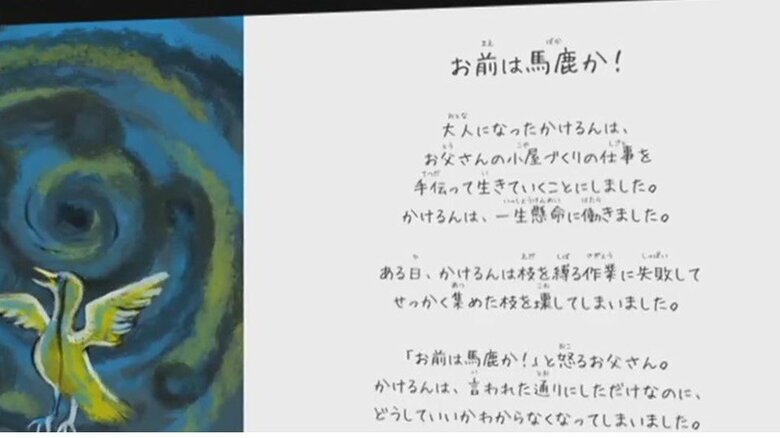 お前は馬鹿か!
大人になったかけるんは、
お父さんの小屋づくりの仕事を
手伝って生きていくことにしました。
かけるんは、一生懸命に働きました。
ある日、かけるんは枝を縛る作業に失敗して
せっかく集めた枝を壊してしまいました。
「お前は馬鹿か!」と怒るお父さん。
かけるんは、言われた通りにしただけなのに、
どうしていいかわからなくなってしまいました。